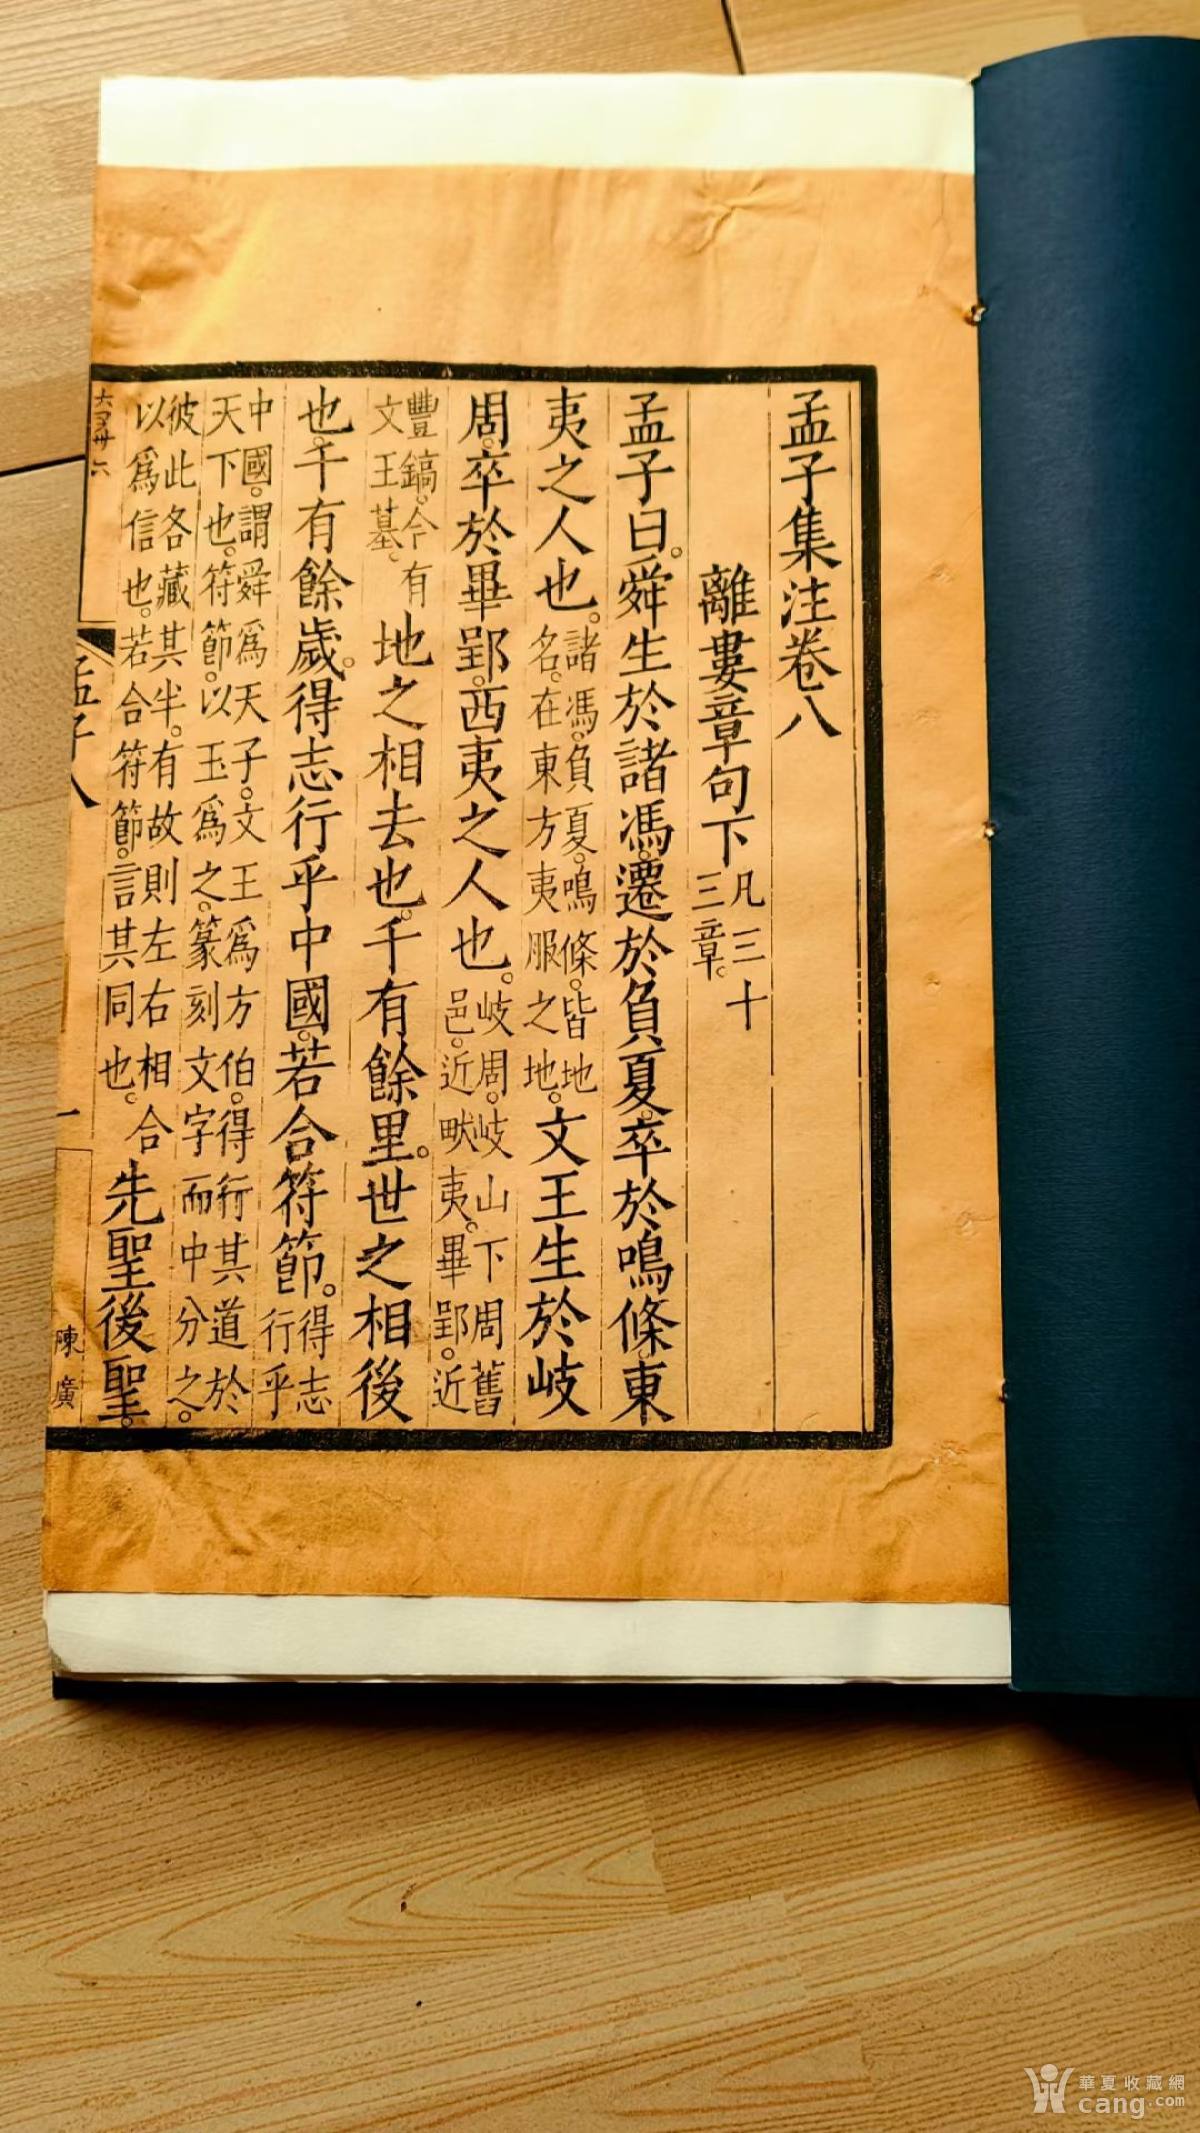 孟子集注卷八
離婁章句下凡三十
三章。
孟子曰。舜生於諸馮。遷於負夏。卒於鳴條。東
夷之人也。諸馮。負夏。鳴條。皆地
名。在東方夷服之地。文王生於岐
周。卒於畢郢。西夷之人也。岐周。岐山下周舊
邑。近畎夷。畢郢。近
豐鎬。今有
文王墓。地之相去也。千有餘里。世之相後
也。千有餘歲。得志行乎中國。若合符節。得志
行乎
中國。謂舜爲天子。文王爲方伯。得行其道於
天下也。符節。以玉爲之。篆刻文字而中分之。
彼此各藏其半。有故則左右相合
以爲信也。若合符節。言其同也。先聖後聖。
孟子八
一
陳廣
華夏收藏網
cang.com